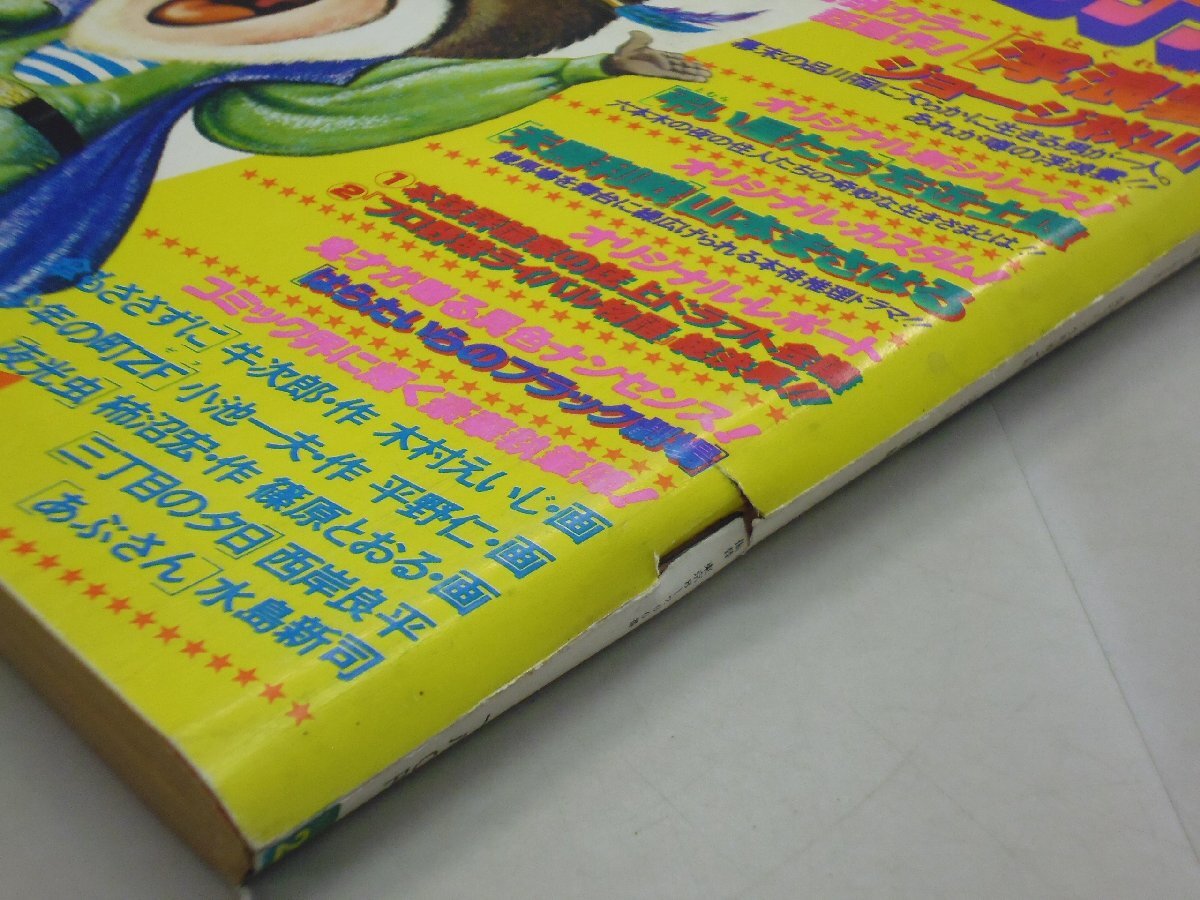 カラー
「浮浪
ジョージ秋山
幕末の品川宿に大らかに生きる男が一人。
あれが噂の浮浪雲!!
オリジナル新シリーズ!
たち」左近士諒
六本木の夜の住人たちの奇妙な生きざまとは!?
オリジナル・カスタム!
山本まさはる
競馬場を舞台に繰広げられる本格推理ドラマ!!
オリジナル・レポート
①本誌
誌上ドラフト会議
②「プロ野球ライバル物語」総決算!!
鬼才が贈る異色ナンセンス!
「はらたいらのブラック劇場」
コミック界に輝く豪華執筆陣!
もささずに」牛次郎・作 木村えいじ・画
年の町ZF」小池一夫・作 平野仁・画
夜光虫」柿沼宏・作 篠原とおる・画
「三丁目の夕日」西岸良平
「あぶさん」水島新司